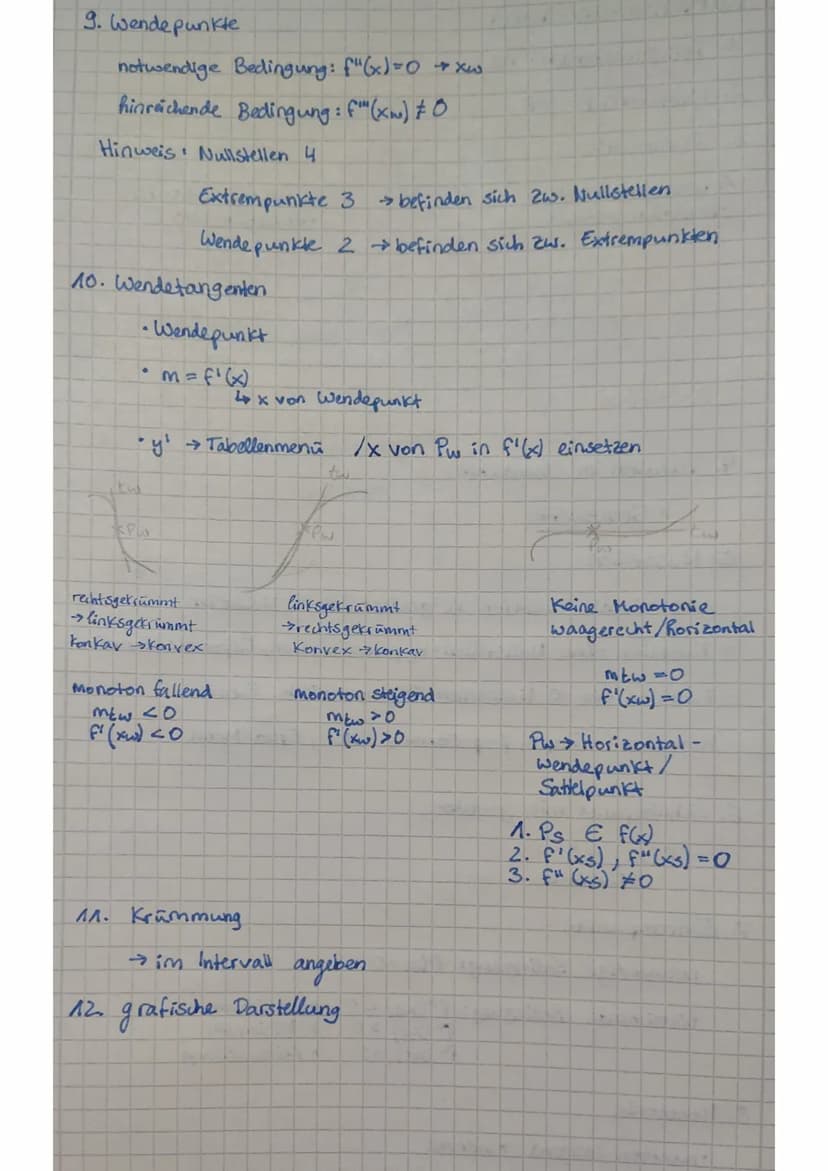 9. Wendepunkte
notwendige Bedingung: f''(x)=0 → xw
hinreichende Bedingung: f'''(xw) ≠ 0
Hinweis: Nullstellen 4
Extrempunkte 3 → befinden sich zw. Nullstellen
Wendepunkte 2 → befinden sich zw. Extrempunkten
10. Wendetangenten
• Wendepunkt
• m = f'(x)
↳ x von Wendepunkt
• y' → Tabellenmenü /x von Pw in f'(x) einsetzen
tw
Pw
tw
Pw
tw
Pw
rechtsgekrümmt
→ linksgekrümmt
konkav → konvex
monoton fallend
mtw < 0
f'(xw) < 0
linksgekrümmt
→ rechtsgekrümmt
Konvex → konkav
monoton steigend
mtw > 0
f'(xw) > 0
Keine Monotonie
waagerecht/horizontal
mtw = 0
f'(xw) = 0
Pw → Horizontal-
wendepunkt/
Sattelpunkt
1. Ps ∈ f(x)
2. f'(xs), f''(xs) = 0
3. f'' (xs) ≠ 0
11. Krümmung
→ im Intervall angeben
12. grafische Darstellung